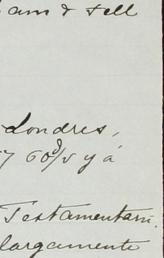 am & tell
Londres,
7 60 d/v y á
Testamentari.
largamente